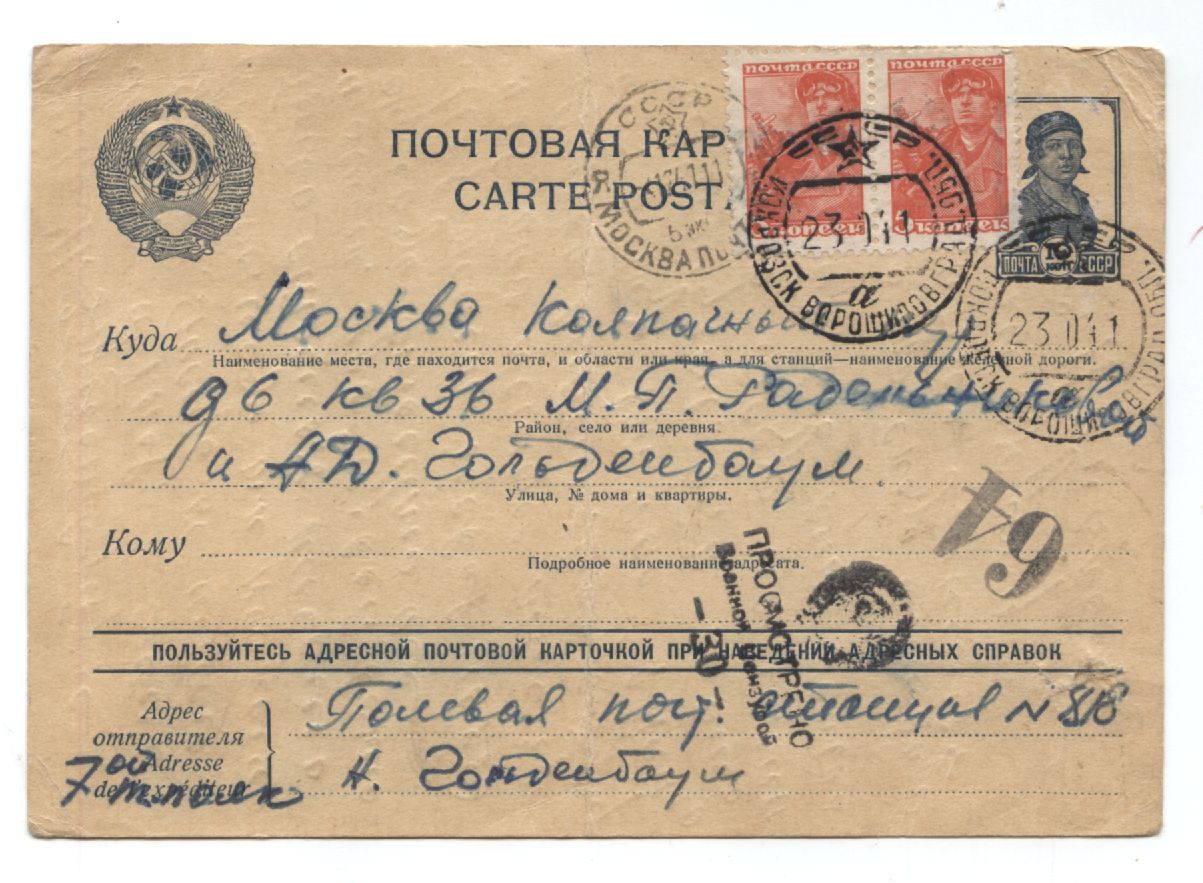 ПОЧТОВАЯ КАР
CARTE POST
ПОЧТА СССР
ПОЧТА СССР
копеек
5 копеек
ПОЧТА 10 КОП. СССР
СССР
МОСКВА
23.0 41
ВОРОШИЛОВГРАД. ОБЛ.
а
23.0 41
ВОРОШИЛОВГРАД
Куда Москва Колпачный
Наименование места, где находится почта, и области или края, а для станций—наименование железной дороги.
д 6 кв 36 М. П.
Район, село или деревня.
и А.Д. Гольденбаум.
Улица, № дома и квартиры.
Кому
Подробное наименование адресата.
64
ПРОСМОТРЕНО
Военной Цензурой
- 30 -
ПОЛЬЗУЙТЕСЬ АДРЕСНОЙ ПОЧТОВОЙ КАРТОЧКОЙ ПРИ НАВЕДЕНИИ АДРЕСНЫХ СПРАВОК
Адрес отправителя
Adresse de l'expéditeur
Полевая почт. станция N 818
Н. Гольденбаум
7ой т. полк